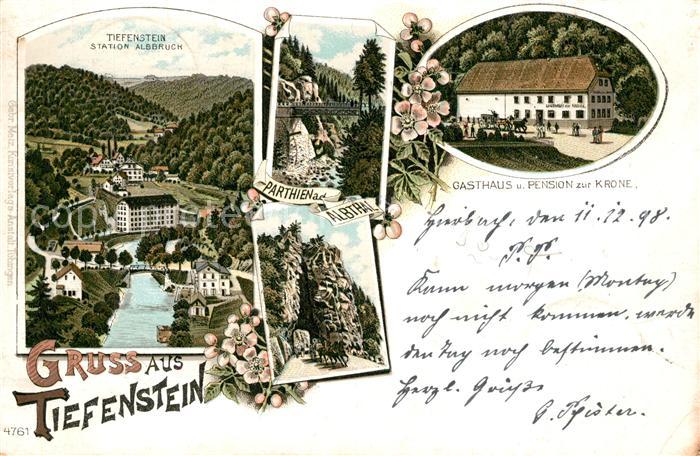 TIEFENSTEIN
STATION ALBBRUCK
PARTHIEN a.d.
ALBTHAL
GASTHAUS ZUR KRONE
GASTHAUS u. PENSION zur KRONE.
Hierbach, den 11.12.98.
P.P.
Kann morgen (Montag)
noch nicht kommen, werde
den Tag noch bestimmen.
Herzl. Grüße
Pfister.
GRUSS AUS
TIEFENSTEIN
4761
Gebr. Metz, Kunstverlags-Anstalt, Tübingen.